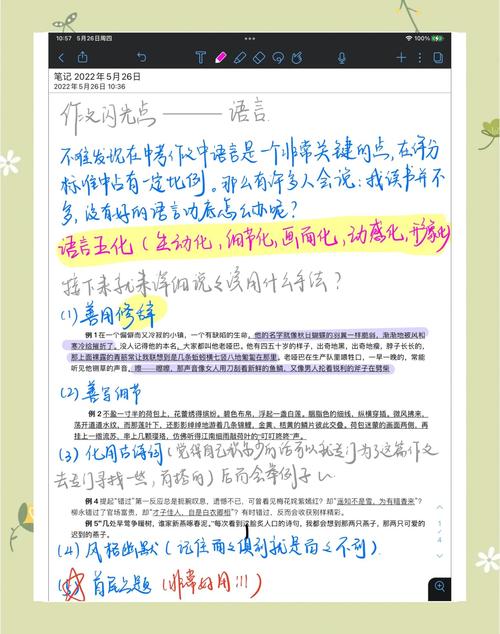 10:57 5月26日周四
100%
笔记 2022年5月26日
2022年5月26日 10:36
作文闪光点 —— 语言
不难发现在中考作文中语言是一个非常关键的点,在评分
标准中占有一定比例。那么有许多人会说:我读书并不
多,没有好的语言功底怎么办呢?
语言五化(生动化,细节化,画面化,动感化,形象化)
接下来就来详细说说用什么手法?
(1)善用修辞
例1在一个偏僻而又冷寂的小镇,一个有缺陷的生命,他的名字就像秋日蝴蝶的羽翼一样脆弱,渐渐地被风和
寒冷给摧折了。没人记得他的本名,大家都叫他老哑巴。他有四五十岁的样子,出奇地黑,出奇地瘦,脖子长长的,
那上面裸露的青筋常让我联想到是几条蚯蚓横七竖八地匍匐在那里。老哑巴在生产队里喂牲口,一早一晚的,常能
听见他铡草的声音,嚓——嚓嚓,那声音像女人用刀刮着新鲜的鱼鳞,又像男人抡着锐利的斧子在劈柴
(2)善写细节
例2不盈一寸半的荷包上,花蕾绣得缤纷。碧色布帛,浮起一盏白莲。胭脂色的细线,纵横穿插。微风拂来,
荡开道道水纹,而那莲叶下,还影影绰绰地游着几条锦鲤,金黄、桔黄的鳞片彼此交叠。荷包迷蒙的画面两侧,再
挂上一绺流苏,串上几颗璎珞,仿佛听得江南细雨敲荷叶的“叮叮咚咚”声。
(3)化用古诗词(觉得自己积累少的话可以专门为了这篇作文
去专门寻找一些,背搭的)后面会举例子
例4提起“错过”第一反应总是扼腕叹息,遗憾不已,可曾看见梅花姹紫嫣红?却“遥知不是雪,为有暗香来”?
柳永错过了官场富贵,却“才子佳人,自是白衣卿相”?有时错过,反而会收获别样精彩。
例5“几处早莺争暖树,谁家新燕啄春泥。”每次看到这脍炙人口的诗句,我都会想到那两只燕子。那两只可爱的
迟到的燕子。
(4)风格幽默(记住而又俱到就是面又不到)
首尾点题(非常好用!!!)
1
4